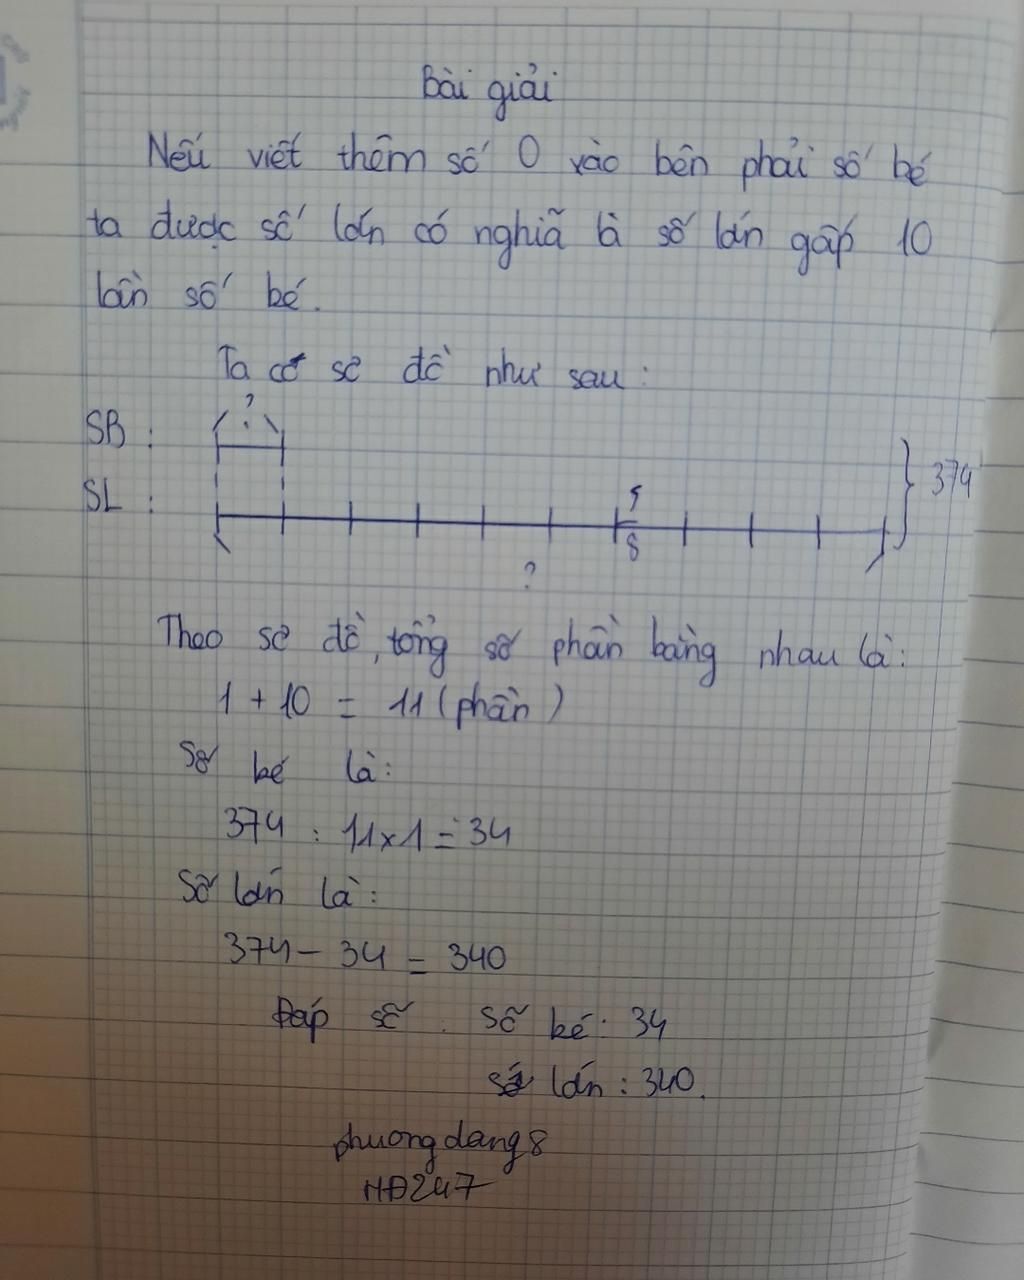 Bài giải
Nếu viết thêm số 0 vào bên phải số bé
ta được số lớn có nghĩa là số lớn gấp 10
lần số bé.
Ta có sơ đồ như sau:
?
SB :
374
SL :
5
8
?
Theo sơ đồ, tổng số phần bằng nhau là:
1 + 10 = 11 (phần)
Số bé là:
374 : 11 x 1 = 34
Số lớn là:
374 - 34 = 340
Đáp số : Số bé: 34
số lớn : 340.
phuongdang8
HĐ247